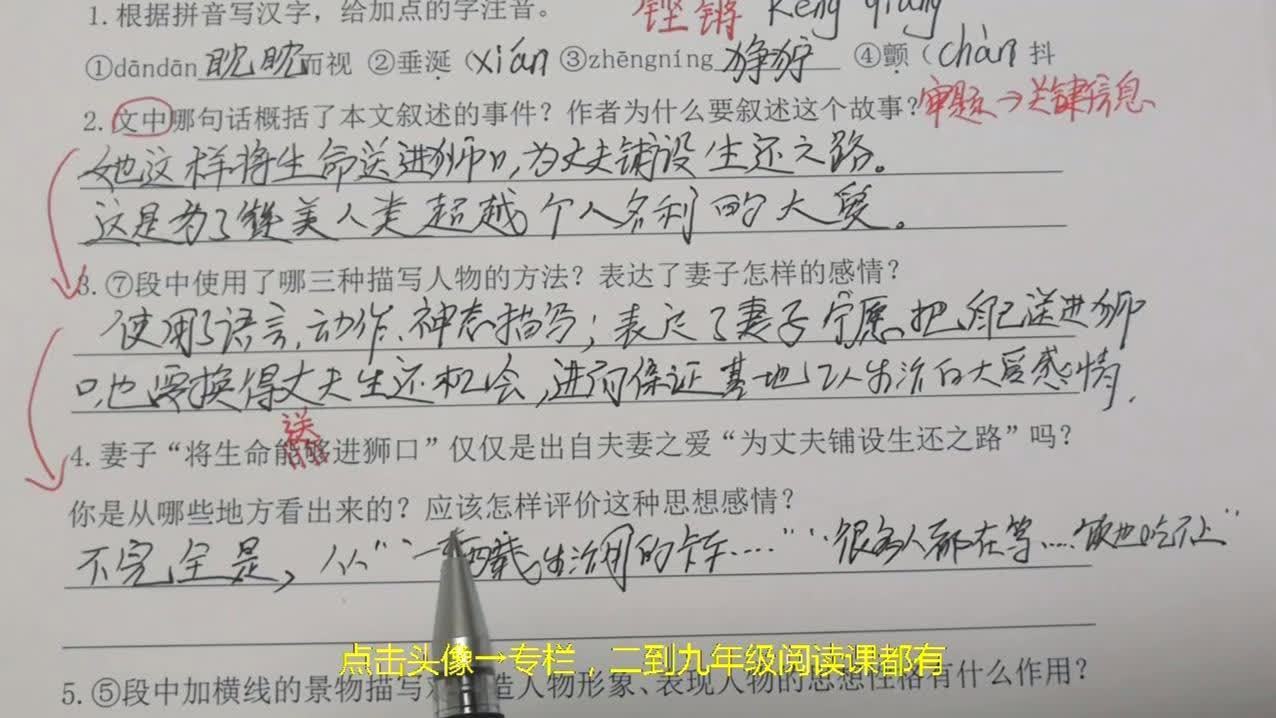 铿锵 kēng qiāng
1.根据拼音写汉字，给加点的字注音。
①dāndān 眈眈 而视 ②垂涎（xián ③zhēngníng 狰狞 ④颤（chàn 抖
2.文中哪句话概括了本文叙述的事件？作者为什么要叙述这个故事？审题→关键信息
她这样将生命送进狮口，为丈夫铺设生还之路。
这是为了赞美人类超越个人名利的大爱。
3.⑦段中使用了哪三种描写人物的方法？表达了妻子怎样的感情？
使用了语言、动作、神态描写；表达了妻子宁愿把自己送进狮
口，也要换得丈夫生还机会，进而保证基地人生活的大爱感情．
送
4.妻子“将生命能够进狮口”仅仅是出自夫妻之爱“为丈夫铺设生还之路”吗？
你是从哪些地方看出来的？应该怎样评价这种思想感情？
不完全是，从“一辆载生活用的卡车……”“很多人都在等……饭也吃不上”
点击头像→专栏，二到九年级阅读课都有
5.⑤段中加横线的景物描写对 造人物形象、表现人物的思想性格有什么作用？